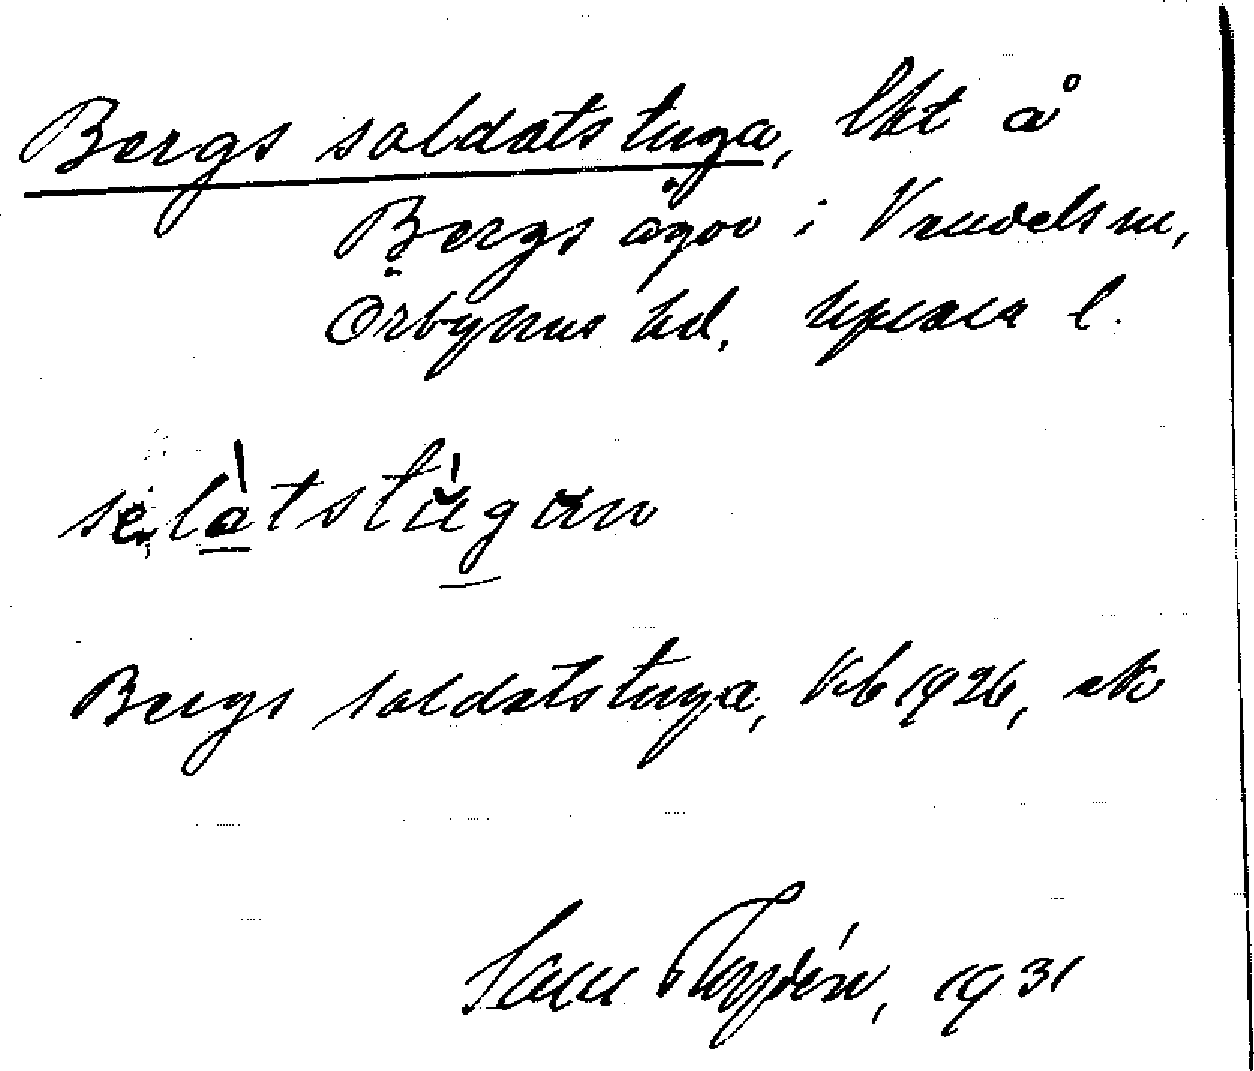 Bergs soldatstuga, lht å
Bergs ägor i Vendels sn,
Örbyhus hd, Upsala l.
selàtstùgan
Bergs soldatstuga, Kb 1926, ek
1931